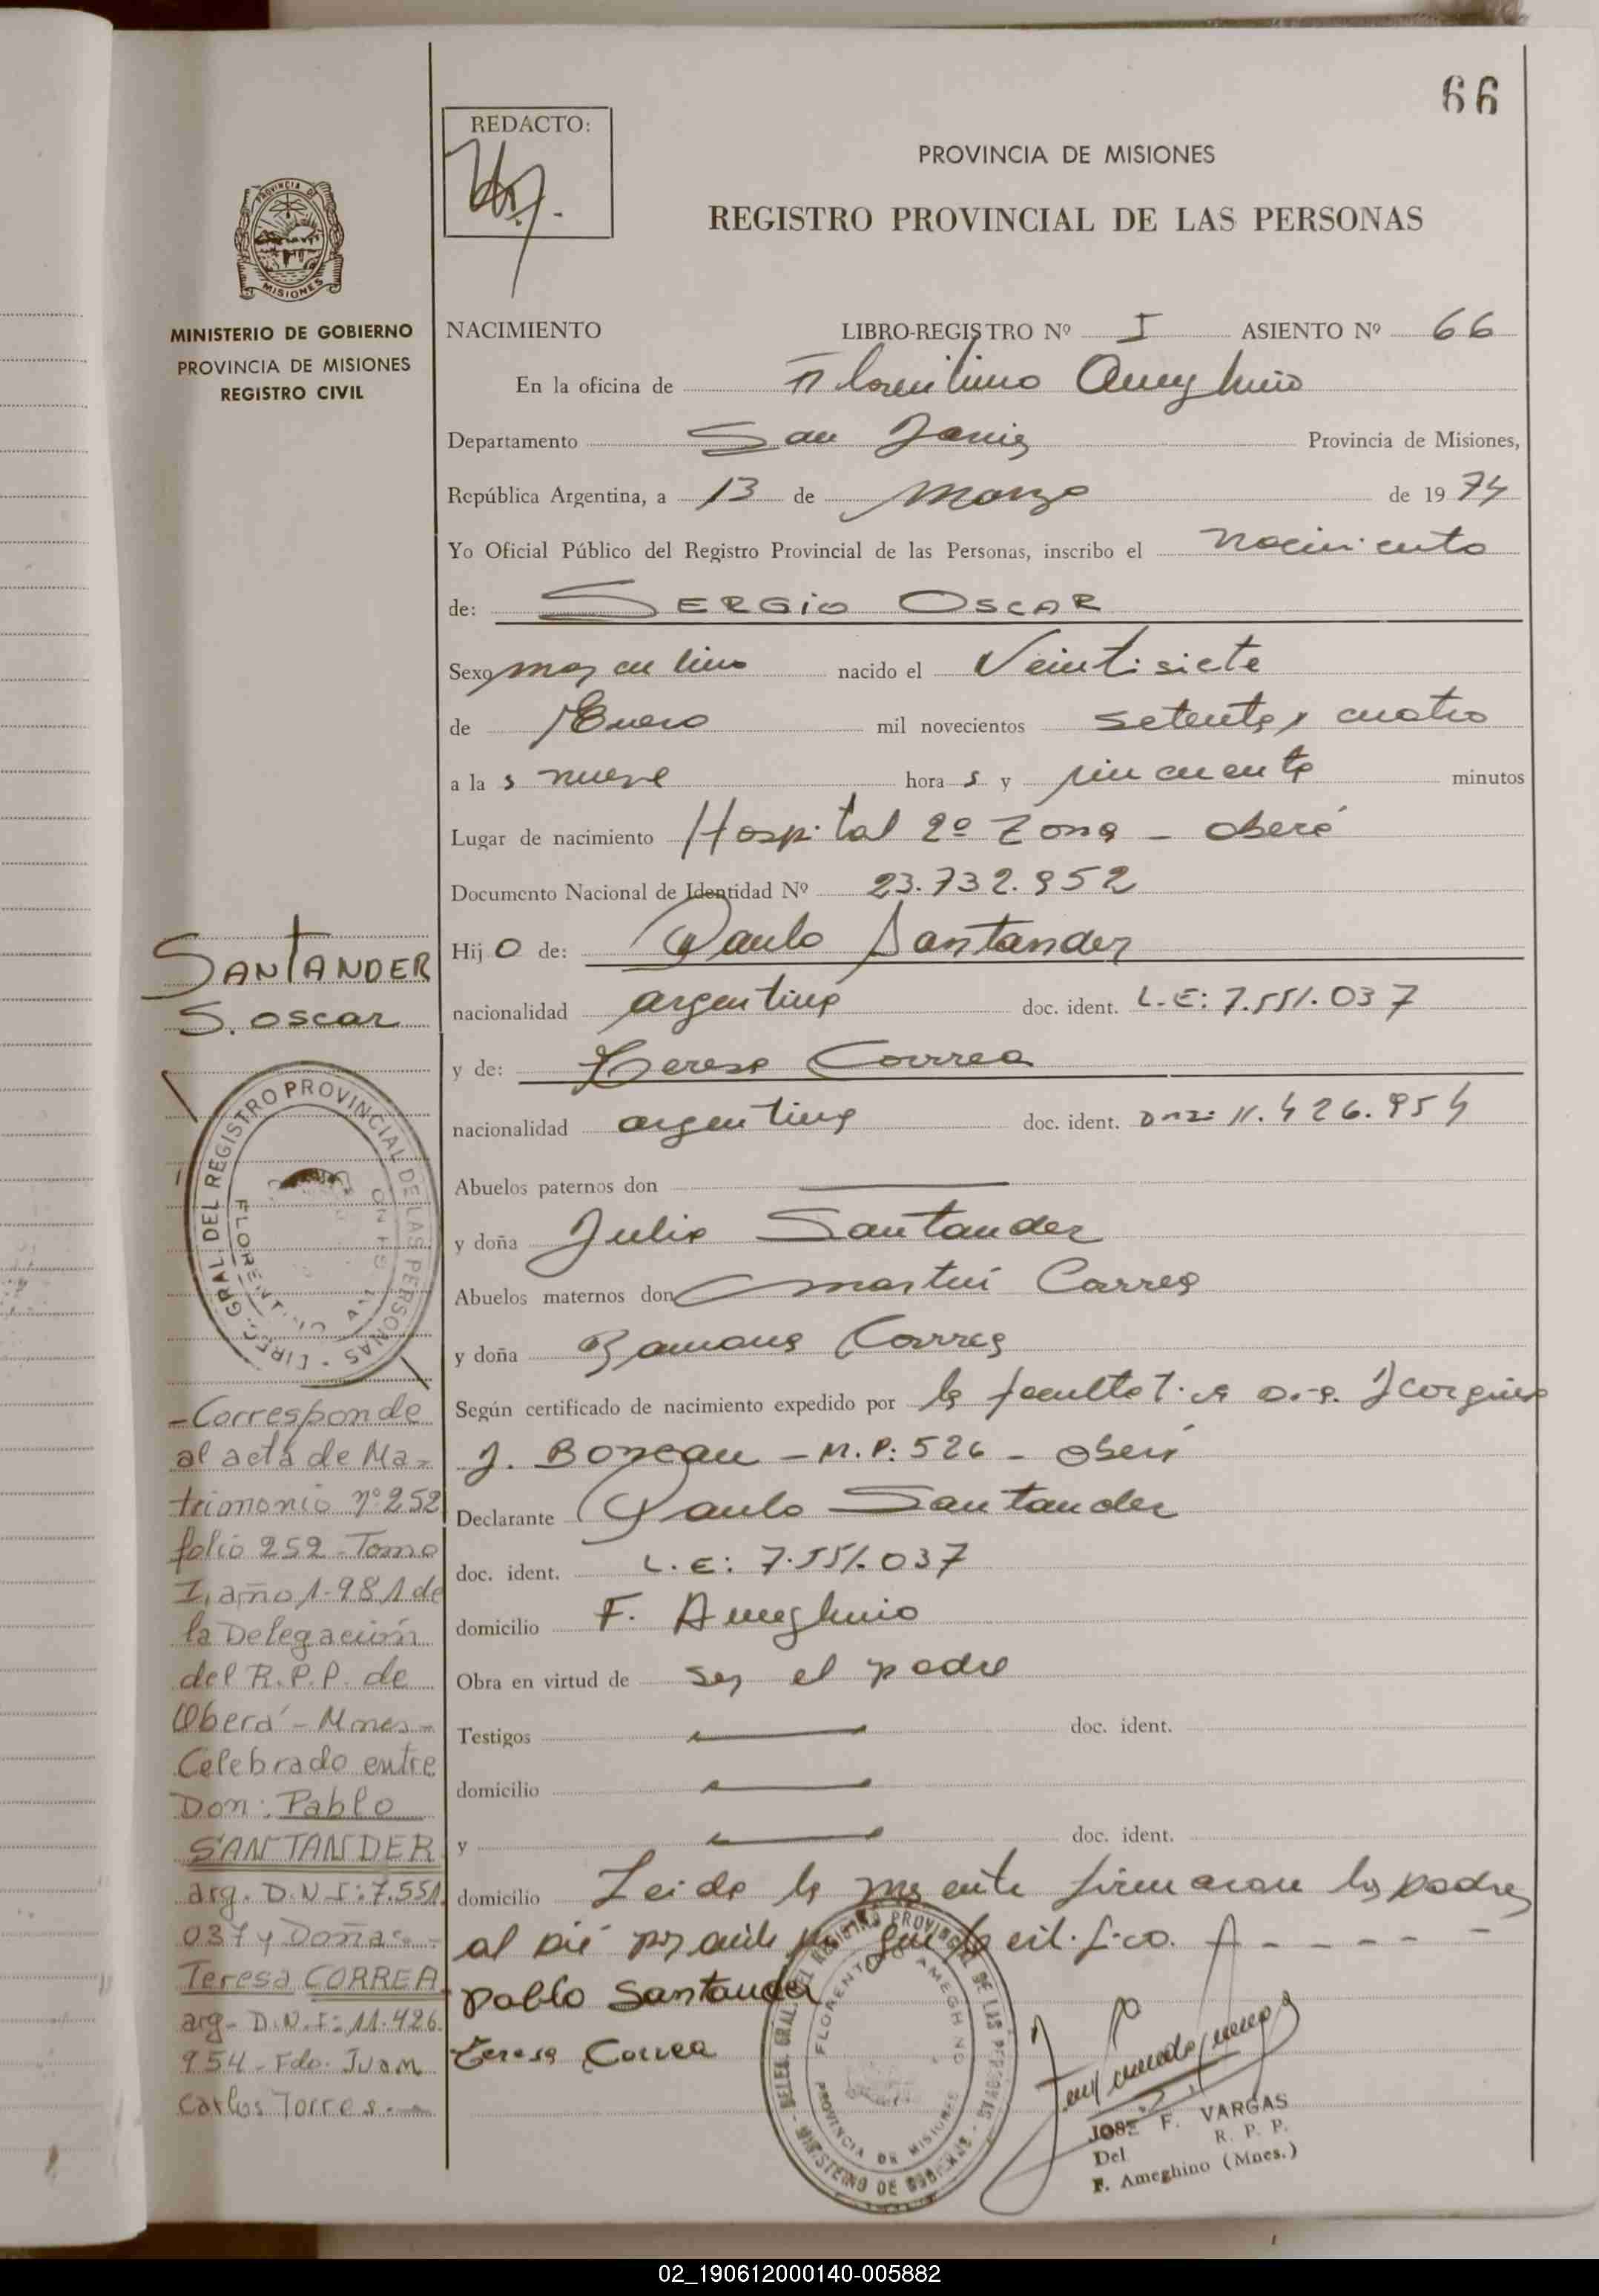 66
REDACTO:
PROVINCIA DE MISIONES
REGISTRO PROVINCIAL DE LAS PERSONAS
PROVINCIA DE
MISIONES
MINISTERIO DE GOBIERNO
PROVINCIA DE MISIONES
REGISTRO CIVIL
NACIMIENTO LIBRO-REGISTRO Nº I ASIENTO Nº 66
En la oficina de Florentino Ameghino
Departamento San Javier Provincia de Misiones,
República Argentina, a 13 de Marzo de 1974
Yo Oficial Público del Registro Provincial de las Personas, inscribo el nacimiento
de: SERGIO OSCAR
Sexo masculino nacido el Veintisiete
de Enero mil novecientos setenta y cuatro
a las nueve horas y cincuenta minutos
Lugar de nacimiento Hospital 2º Zona - Oberá
Documento Nacional de Identidad Nº 23.732.952
Hijo de: Paulo Santander
nacionalidad argentina doc. ident. L.E: 7.551.037
y de: Teresa Correa
nacionalidad argentina doc. ident. DNI: 11.426.954
Abuelos paternos don
y doña Julia Santander
Abuelos maternos don Martin Correa
y doña Ramona Correa
Según certificado de nacimiento expedido por la facultativa Dra.
J. - M.P.: 526 - Oberá
Declarante Paulo Santander
doc. ident. L.E: 7.551.037
domicilio F. Ameghino
Obra en virtud de ser el padre
Testigos doc. ident.
domicilio
y doc. ident.
domicilio Leida la presente firmaron los padres
al pié por ante mi que certifico.
Pablo Santander
Teresa Correa
JOSE F. VARGAS
Del R. P. P.
F. Ameghino (Mnes.)
SANTANDER
S. OSCAR
DIREC. GRAL. DEL REGISTRO PROVINCIAL DE LAS PERSONAS
- Corresponde
al acta de Ma-
trimonio nº 252
folio 252 - Tomo
I, año 1.981 de
la Delegación
del R.P.P. de
Oberá - Mnes -
Celebrado entre
Don: Pablo
SANTANDER
arg. D.N.I: 7.551.
037 y Doña:
Teresa CORREA
arg - D.N.I: 11.426.
954 - Fdo. Juan
Carlos Torres.
DELEG. GRAL. DEL REGISTRO PROVINCIAL DE LAS PERSONAS - MINISTERIO DE GOBIERNO
FLORENTINO AMEGHINO
PROVINCIA DE MISIONES
02_190612000140-005882